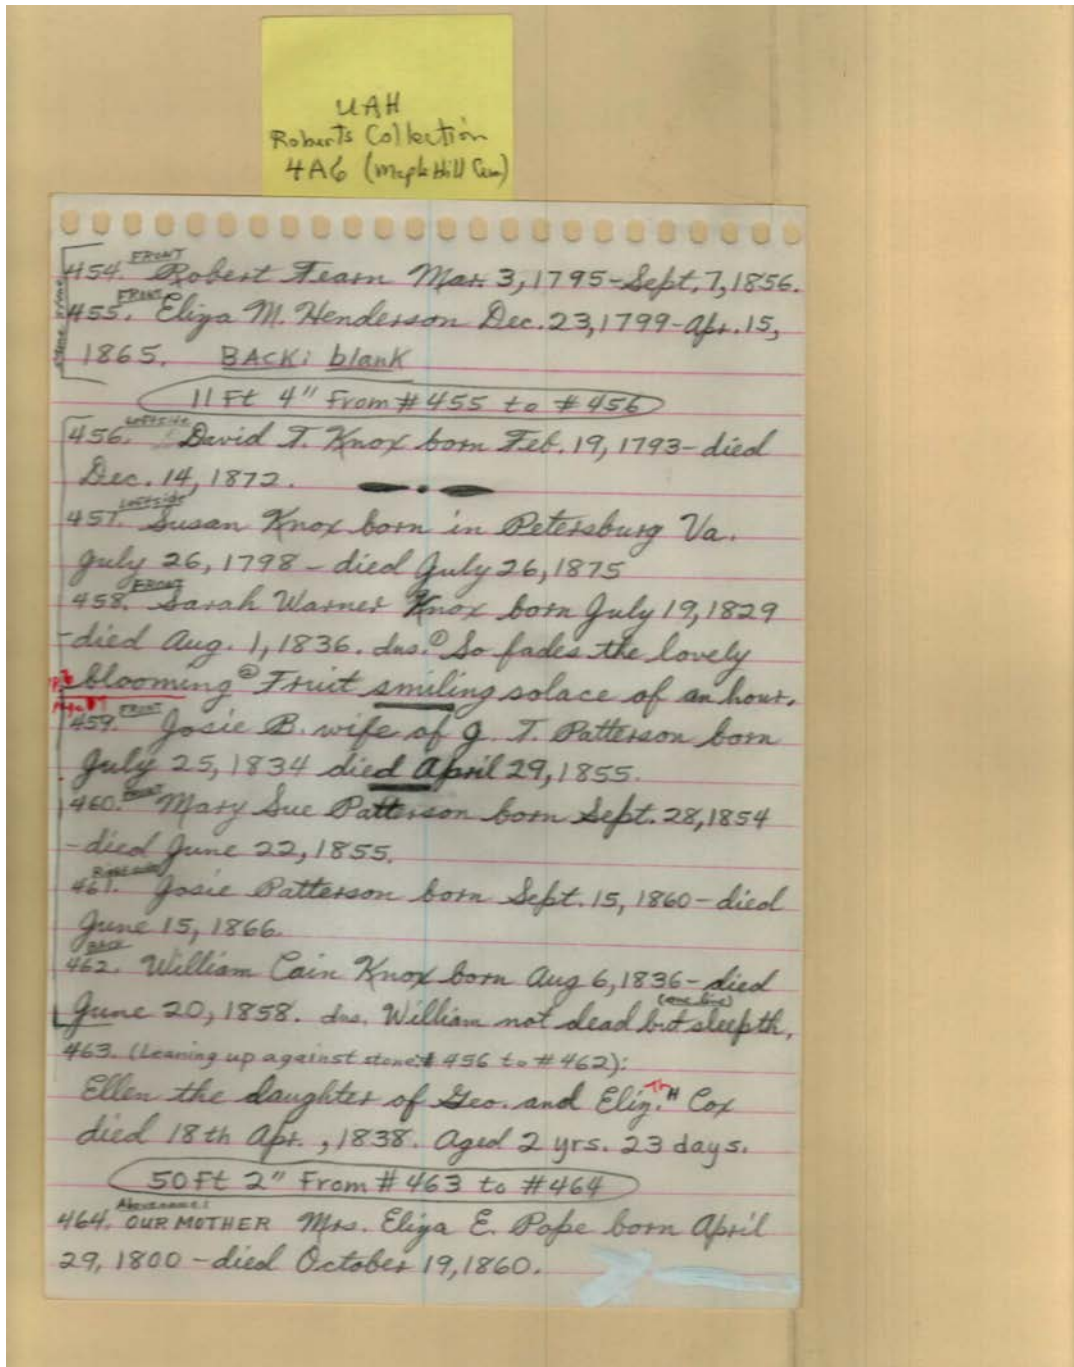 UAH
Roberts Collection
4A6 (Maple Hill Cem)
454. FRONT Robert Fearn Mar. 3, 1795-Sept. 7, 1856.
455. FRONT Eliza M. Henderson Dec. 23, 1799-Apr. 15,
1865. BACK: blank
11 Ft 4" From # 455 to # 456
456. Leftside David T. Knox born Feb. 19, 1793-died
Dec. 14, 1872.
457. Leftside Susan Knox born in Petersburg Va.
July 26, 1798 - died July 26, 1875
458. FRONT Sarah Warner Knox born July 19, 1829
-died Aug. 1, 1836. ins. ① So fades the lovely
blooming ② Fruit smiling solace of an hour.
459. FRONT Josie B. wife of J. T. Patterson born
July 25, 1834 died April 29, 1855.
460. FRONT Mary Sue Patterson born Sept. 28, 1854
-died June 22, 1855.
461. Josie Patterson born Sept. 15, 1860-died
June 15, 1866.
BACK
462. William Cain Knox born Aug 6, 1836-died
June 20, 1858. ins. William not dead but sleepth. (one line)
463. (Leaning up against stone # 456 to # 462):
Ellen the daughter of Geo. and Eliz. TH Cox
died 18th Apr., 1838. Aged 2 yrs. 23 days.
50 Ft 2" From # 463 to #464
Above name:
464. OUR MOTHER Mrs. Eliza E. Pope born April
29, 1800 - died October 19, 1860.